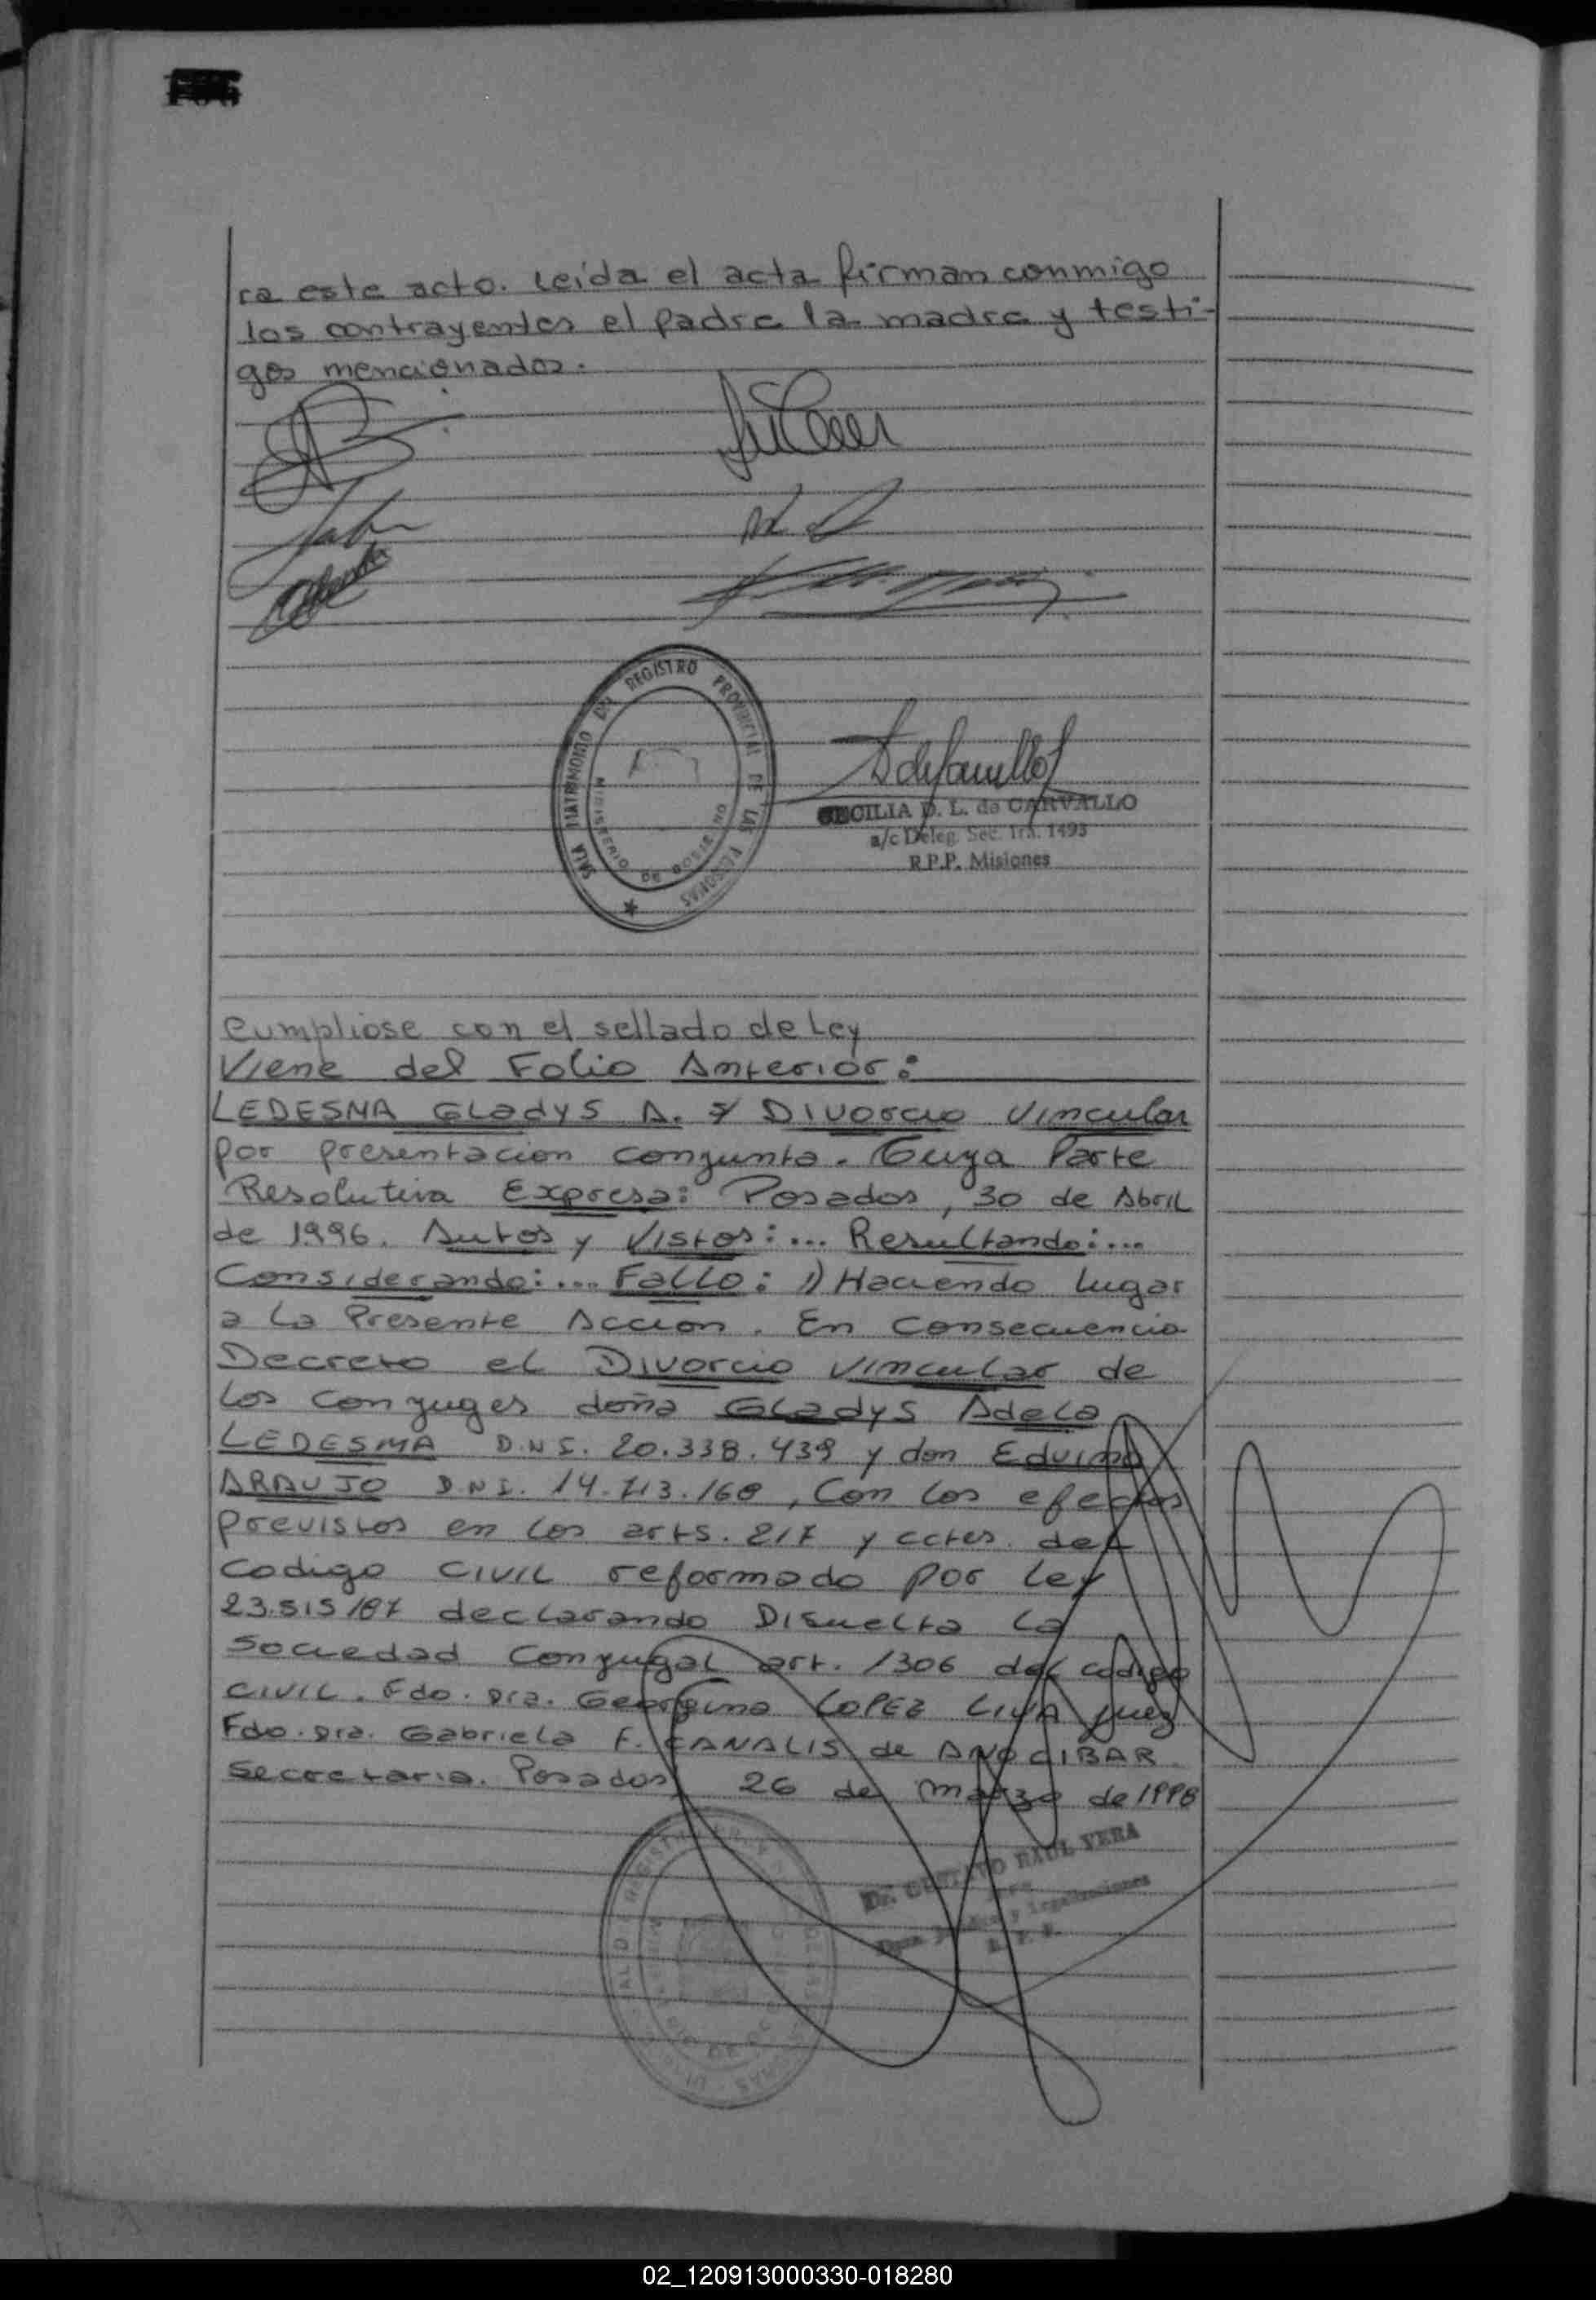 ra este acto. Leida el acta firman conmigo
los contrayentes el padre la madre y testi-
gos mencionados.
SALA MATRIMONIO DEL REGISTRO PROVINCIAL DE LAS PERSONAS
MINISTERIO DE GOBIERNO
CECILIA D. L. de CARVALLO
a/c Deleg. Sec. 1ra. 1493
R.P.P. Misiones
Cumpliose con el sellado de Ley
Viene del Folio Anterior:
LEDESMA GLadyS A. s/ Divorcio Vincular
por presentacion conjunta. Cuya Parte
Resolutiva Expresa: Posadas, 30 de Abril
de 1996. Autos y Vistos:... Resultando:...
Considerando:... FALLO: 1) Haciendo lugar
a La Presente Accion. En Consecuencia
Decreto el Divorcio Vincular de
Los Conyuges doña GLadyS Adela
LEDESMA D.N.I. 20.338.439 y don Eduino
ARAUJO D.N.I. 14.713.168, Con los efectos
previstos en los arts. 217 y cctes. del
Codigo CIVIL reformado por Ley
23.515/87 declarando Disuelta La
Sociedad Conyugal art. 1306 del codigo
CIVIL. Fdo. Dra. Georgina LOPEZ LIVA juez
Fdo. Dra. Gabriela F. CANALIS de ANOCIBAR
Secretaria. Posadas, 26 de Marzo de 1998
Dr. GUSTAVO RAUL VERA
y Legalizaciones
R. P. P.
02_120913000330-018280